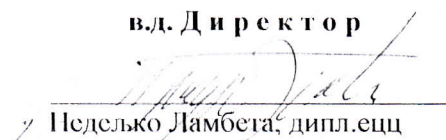 в.д. Д и р е к т о р
Недељко Ламбета, дипл.ецц